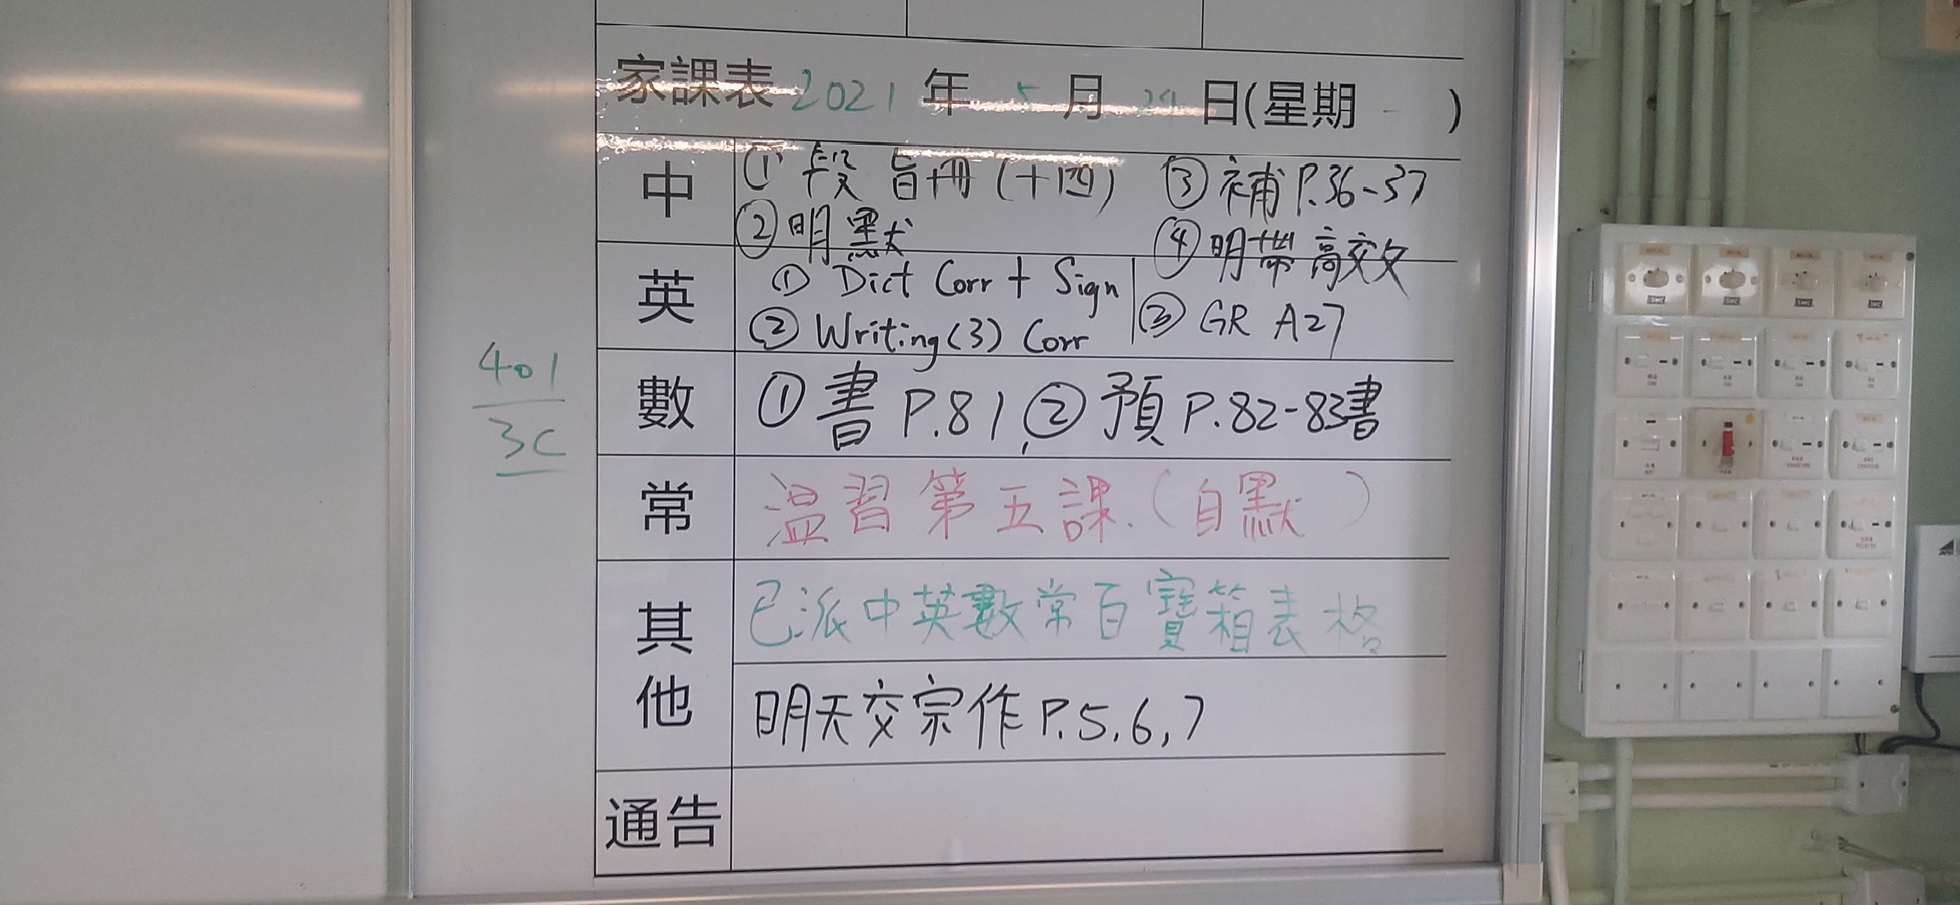 家課表 2021 年 5 月 日(星期 一 )
中
① 段旨冊(十四) ③ 補P.36-37
② 明默 ④ 明帶高交文
英
① Dict Corr + Sign
② Writing(3) Corr ③ GR A27
數
① 書 P.81, ② 預 P.82-83書
401
3C
常
溫習第五課.(自默)
其他
已派中英數常百寶箱表格
明天交宗作P.5,6,7
通告